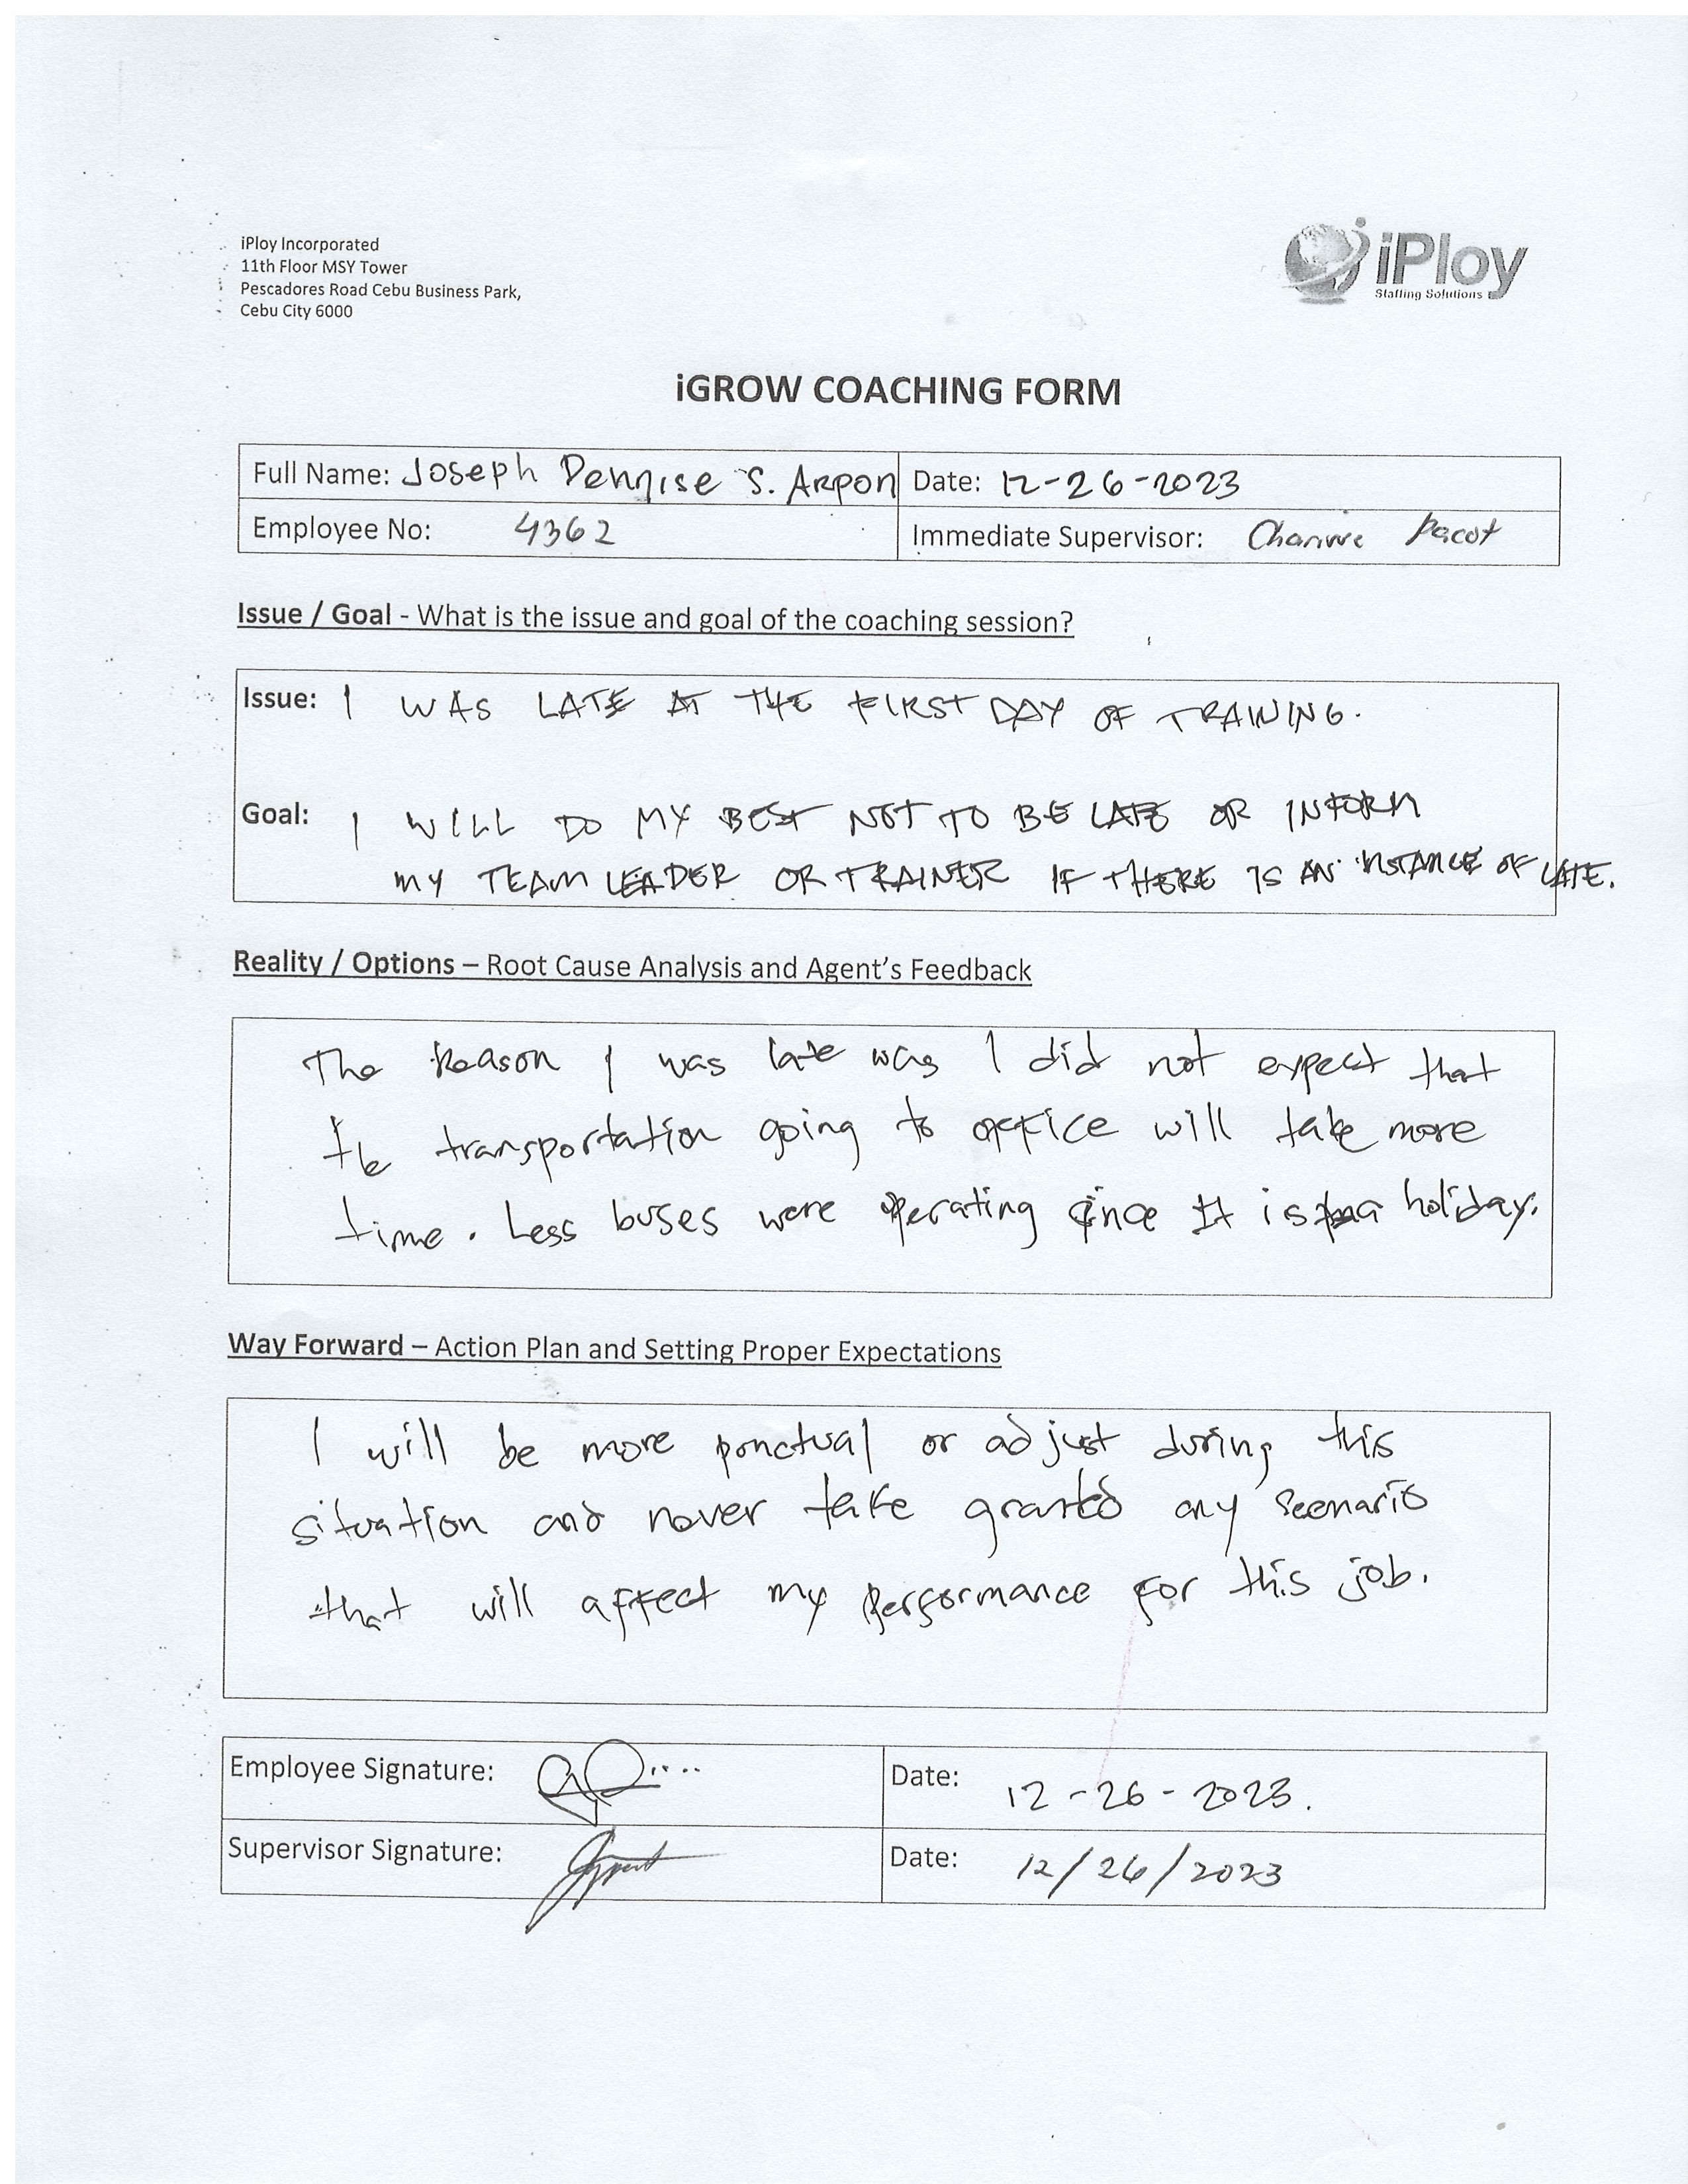 iPloy Incorporated
11th Floor MSY Tower
Pescadores Road Cebu Business Park,
Cebu City 6000
iPloy
Staffing Solutions
iGROW COACHING FORM
Full Name: Joseph Dennise S. Arpon Date: 12-26-2023
Employee No: 4362 Immediate Supervisor: Pacot
Issue / Goal - What is the issue and goal of the coaching session?
Issue: I WAS LATE AT THE FIRST DAY OF TRAINING.
Goal: I WILL DO MY BEST NOT TO BE LATE OR INFORM
MY TEAM LEADER OR TRAINER IF THERE IS AN INSTANCE OF LATE.
Reality / Options – Root Cause Analysis and Agent's Feedback
The Reason I was late was I did not expect that
the transportation going to office will take more
time. Less buses were operating since It is a holiday.
Way Forward – Action Plan and Setting Proper Expectations
I will be more punctual or adjust during this
situation and never take granted any scenario
that will affect my performance for this job.
Employee Signature: Date: 12-26-2023.
Supervisor Signature: Date: 12/26/2023